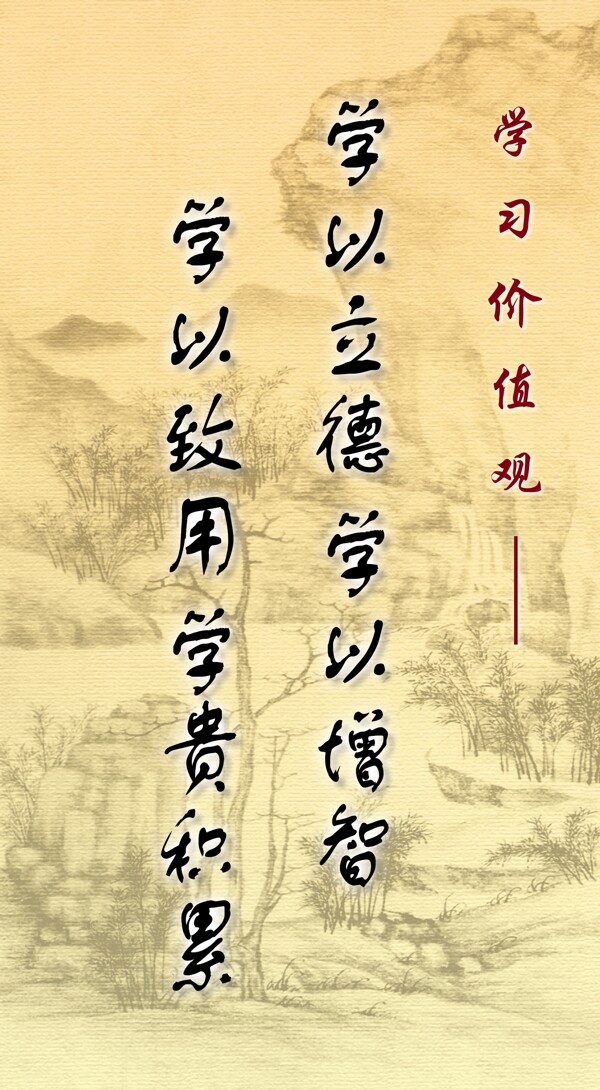 学习价值观——
学以立德 学以增智
学以致用 学貴积累